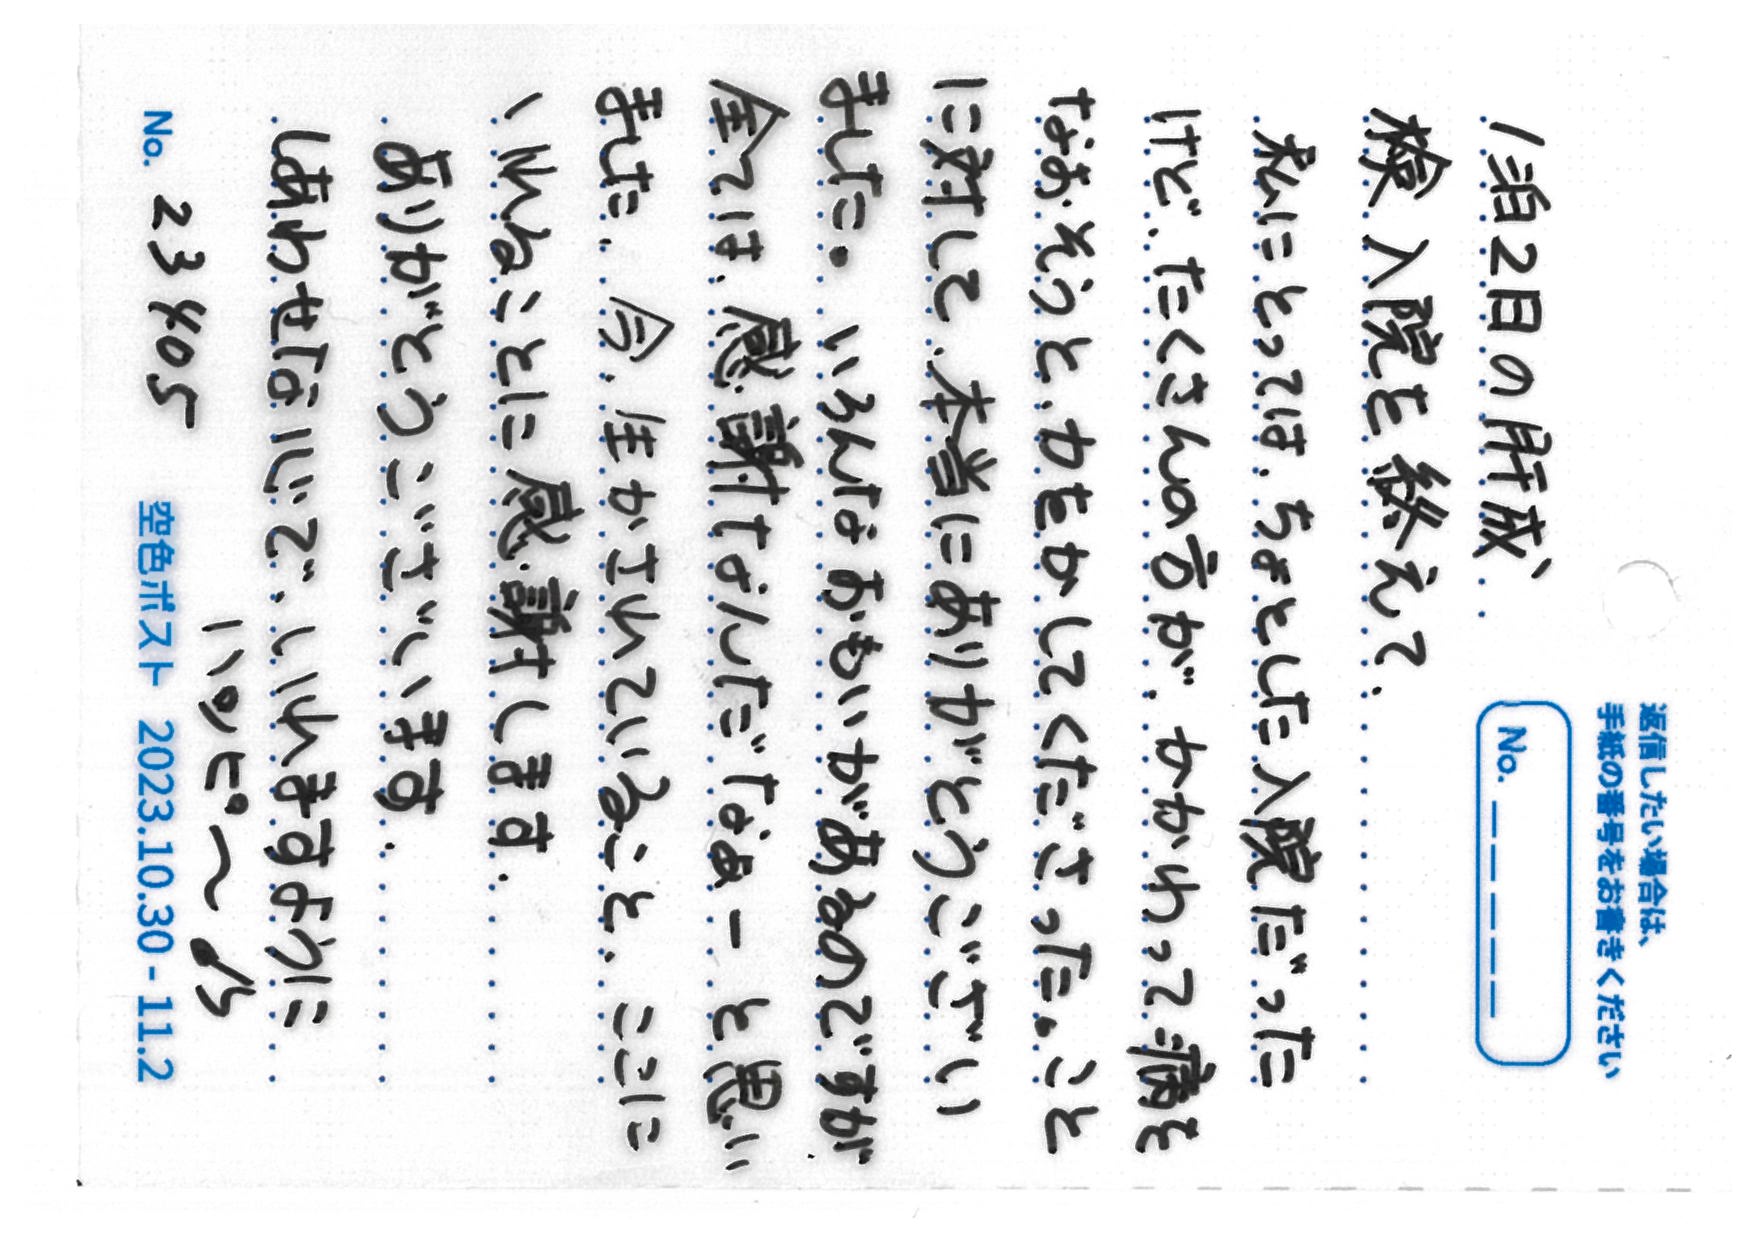 返信したい場合は、
手紙の番号をお書きください
No. _ _ _ _ _
1泊2日の肝成
検入院を終えて、
私にとっては、ちょとした入院だった
けど、たくさんの方が、かかわって病を
なおそうと、力をかしてくださった。こと
に対して、本当にありがとうござい
ました。いろんなおもいがあるのですが、
全ては、感謝なんだなぁーと思い
ました、今、生かされていること、ここに
いれることに感謝します、
ありがとうございます、
しあわせな心で、いれますように
ハッピ〜♪
No. 23405
空色ポスト 2023.10.30 - 11.2